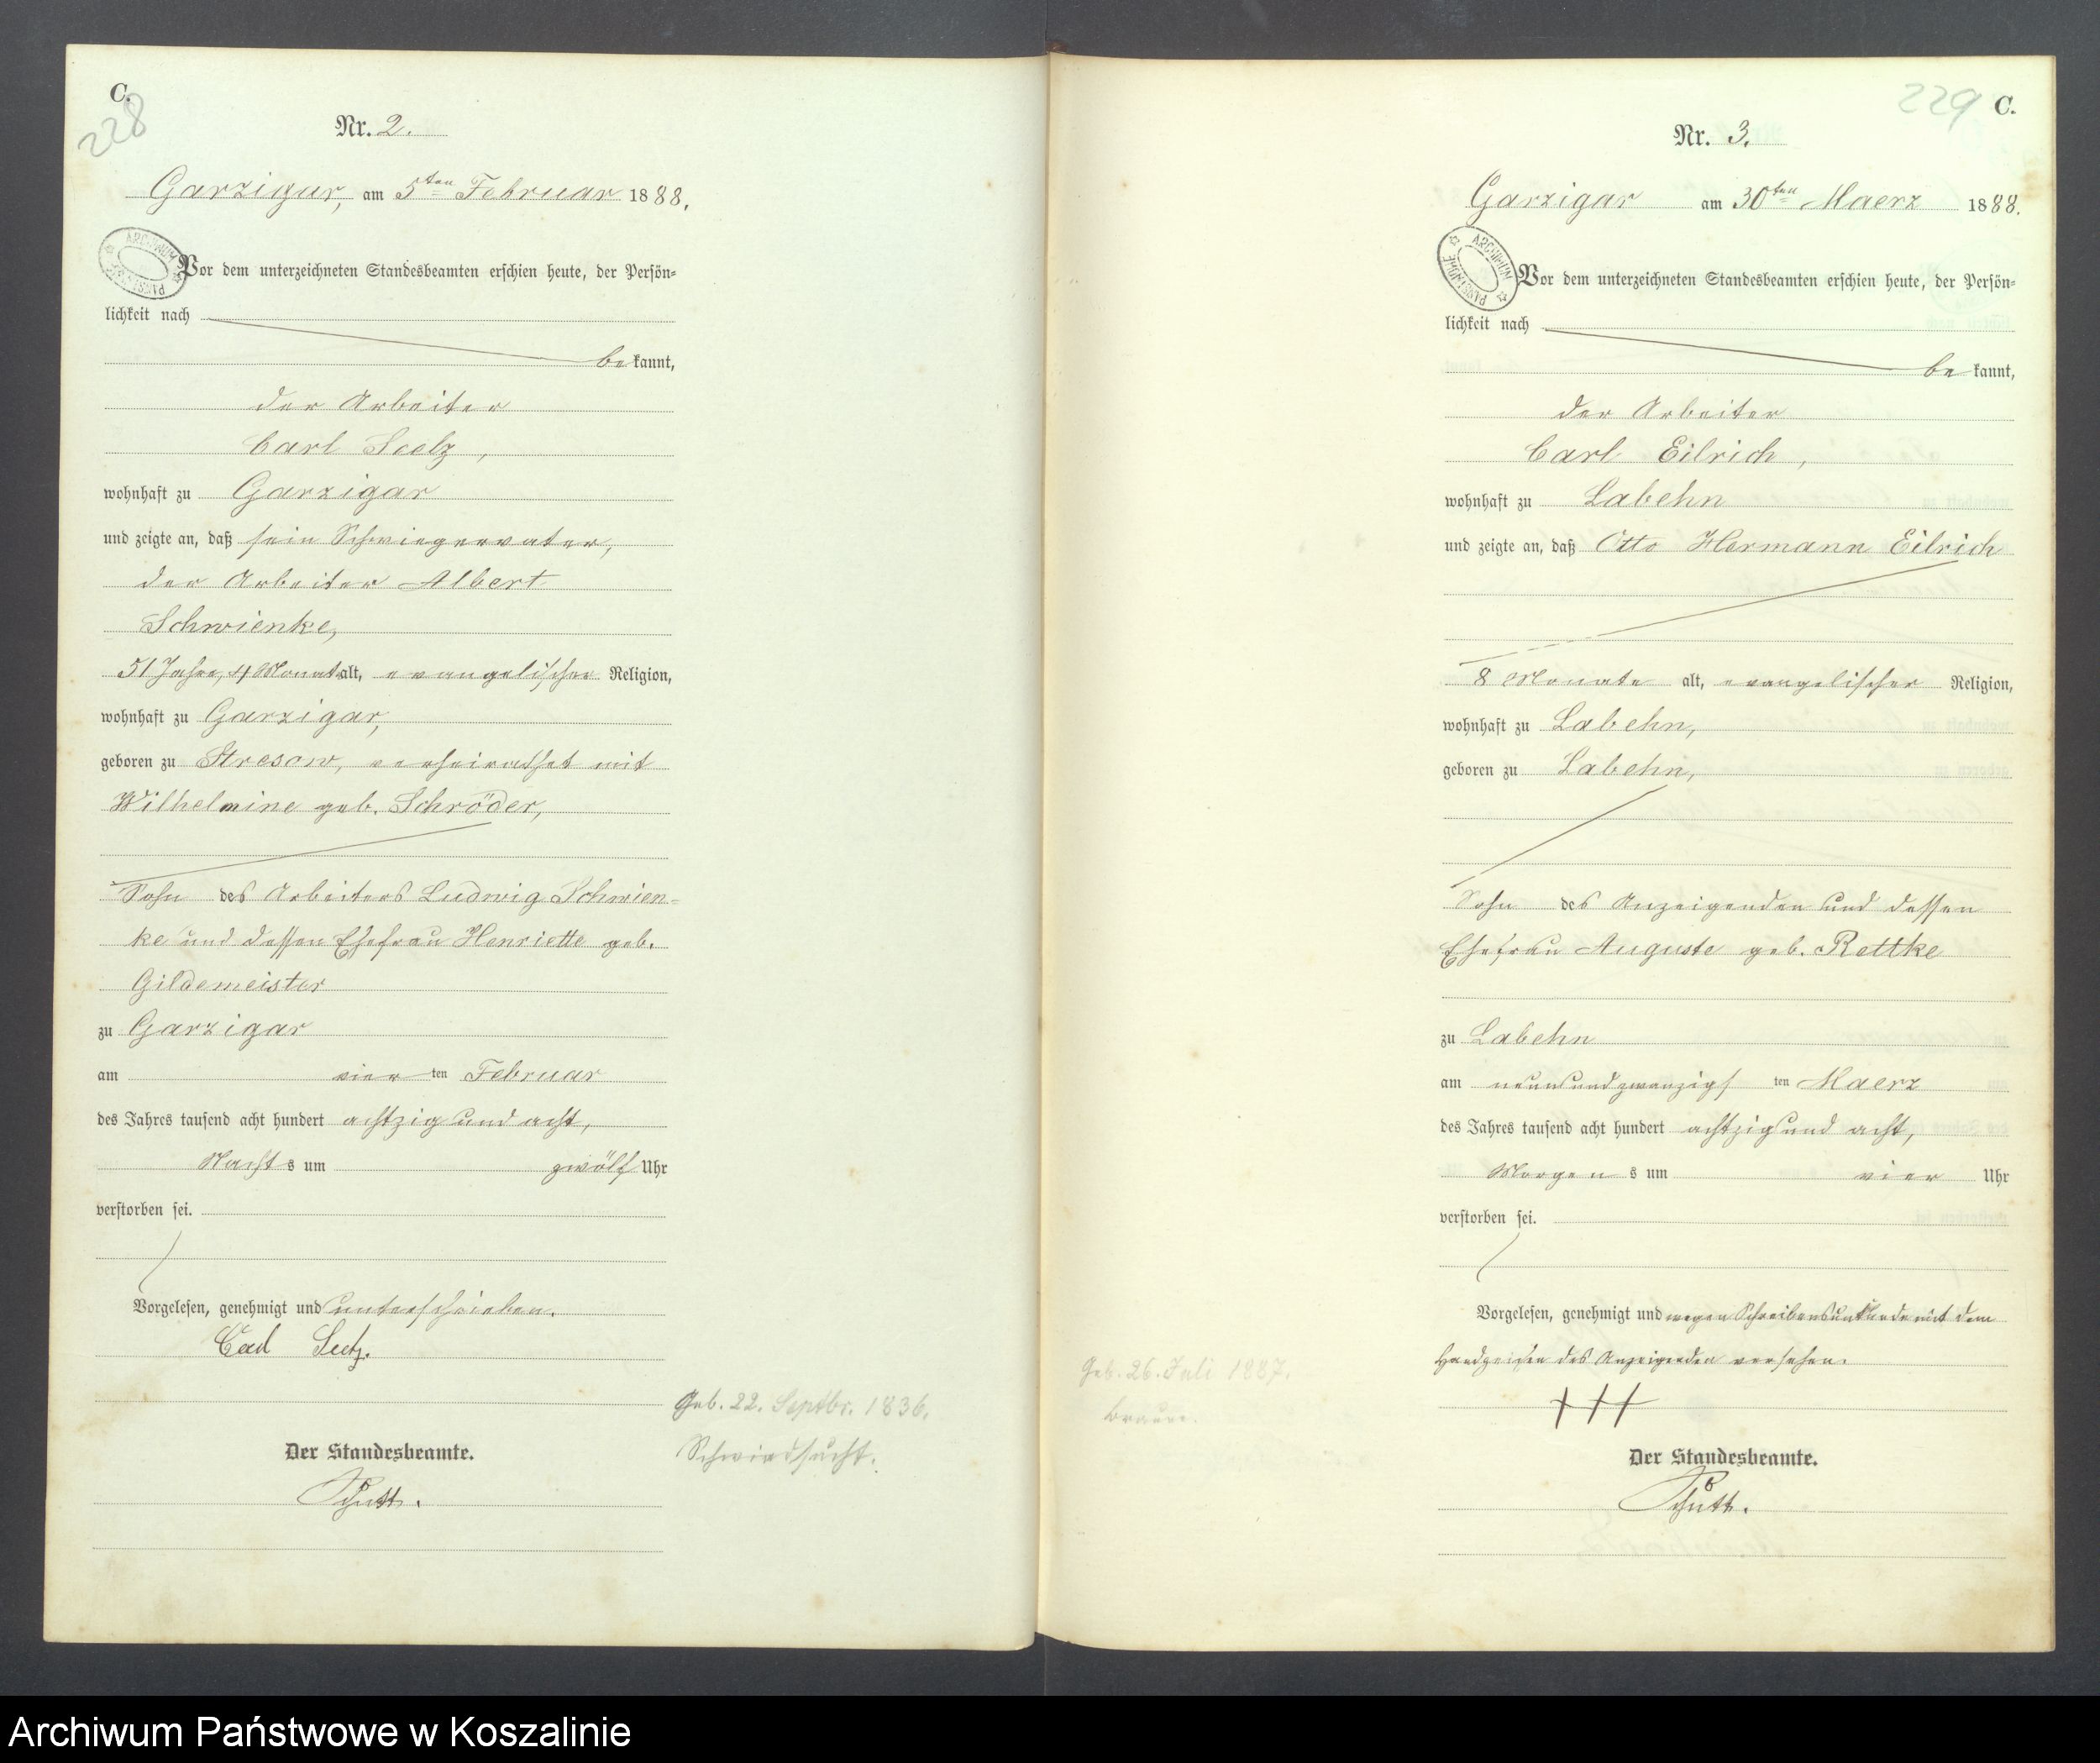 C.
228
Nr. 2.
Garzigar, am 5ten Februar 1888.
Vor dem unterzeichneten Standesbeamten erschien heute, der Persön=
lichkeit nach
bekannt,
der Arbeiter
Carl Seelz,
wohnhaft zu Garzigar
und zeigte an, daß sein Schwiegervater,
der Arbeiter Albert
Schwienke,
51 Jahre, 4 Monat alt, evangelischer Religion,
wohnhaft zu Garzigar,
geboren zu Stresow, verheirathet mit
Wilhelmine geb. Schröder,
Sohn des Arbeiters Ludwig Schwien=
ke und dessen Ehefrau Henriette geb.
Gildemeister
zu Garzigar
am vierten Februar
des Jahres tausend acht hundert achtzig und acht,
Nachts um zwölf Uhr
verstorben sei.
Vorgelesen, genehmigt und unterschrieben.
Carl Seelz.
Geb. 22. Septbr. 1836.
Schwindsucht.
Der Standesbeamte.
229 C.
Nr. 3.
Garzigar am 30ten Maerz 1888.
ARCHIWUM PAŃSTWOWE
Vor dem unterzeichneten Standesbeamten erschien heute, der Persön=
lichkeit nach
bekannt,
der Arbeiter
Carl Eilrich,
wohnhaft zu Labehn
und zeigte an, daß Otto Hermann Eilrich
8 Monate alt, evangelischer Religion,
wohnhaft zu Labehn,
geboren zu Labehn,
Sohn des Anzeigenden und dessen
Ehefrau Auguste geb. Rettke
zu Labehn
am neunundzwanzigsten Maerz
des Jahres tausend acht hundert achtzig und acht,
Morgens um vier Uhr
verstorben sei.
Vorgelesen, genehmigt und wegen Schreibensunkunde mit dem
Handzeichen des Anzeigenden versehen.
+++
Geb. 26. Juli 1887.
Der Standesbeamte.
Archiwum Państwowe w Koszalinie